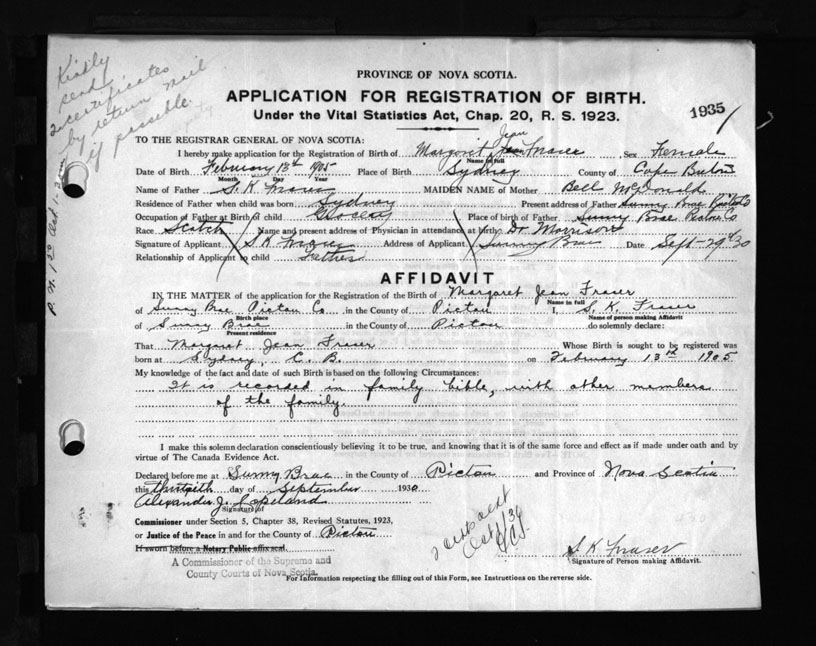 Kindly
send
2 certificates
by return mail
if possible.
PROVINCE OF NOVA SCOTIA.
APPLICATION FOR REGISTRATION OF BIRTH.
Under the Vital Statistics Act, Chap. 20, R. S. 1923.
1935/
TO THE REGISTRAR GENERAL OF NOVA SCOTIA:
Jean
I hereby make application for the Registration of Birth of Margaret Fraser Sex Female
Name in full
Date of Birth February 13th 1905 Place of Birth Sydney County of Cape Breton
Month Day Year
Name of Father S. K Fraser MAIDEN NAME of Mother Bell McDonald
Residence of Father when child was born Sydney Present address of Father Sunny Brae Pictou Co
Occupation of Father at Birth of child Grocery Place of birth of Father Sunny Brae Pictou Co.
Race Scotch Name and present address of Physician in attendance at birth Dr Morrison
Signature of Applicant S K Fraser Address of Applicant Sunny Brae Date Sept-29th 30
Relationship of Applicant to child Father
AFFIDAVIT
IN THE MATTER of the application for the Registration of the Birth of Margaret Jean Fraser
Name in full
of Sunny Brae Pictou Co in the County of Pictou I, S. K Fraser
Birth place Name of person making Affidavit
of Sunny Brae in the County of Pictou do solemnly declare:
Present residence
That Margaret Jean Fraser Whose Birth is sought to be registered was
born at Sydney, C. B. on February 13th 1905
My knowledge of the fact and date of such Birth is based on the following Circumstances:
It is recorded in family bible, with other members
of the family.
I make this solemn declaration conscientiously believing it to be true, and knowing that it is of the same force and effect as if made under oath and by
virtue of The Canada Evidence Act.
Declared before me at Sunny Brae in the County of Pictou and Province of Nova Scotia
this thirtieth day of September 1930
Alexander J. Copeland
Signature of
Commissioner under Section 5, Chapter 38, Revised Statutes, 1923,
or Justice of the Peace in and for the County of Pictou
If sworn before a Notary Public affix seal.
A Commissioner of the Supreme and
County Courts of Nova Scotia.
S K Fraser
Signature of Person making Affidavit.
For Information respecting the filling out of this Form, see Instructions on the reverse side.